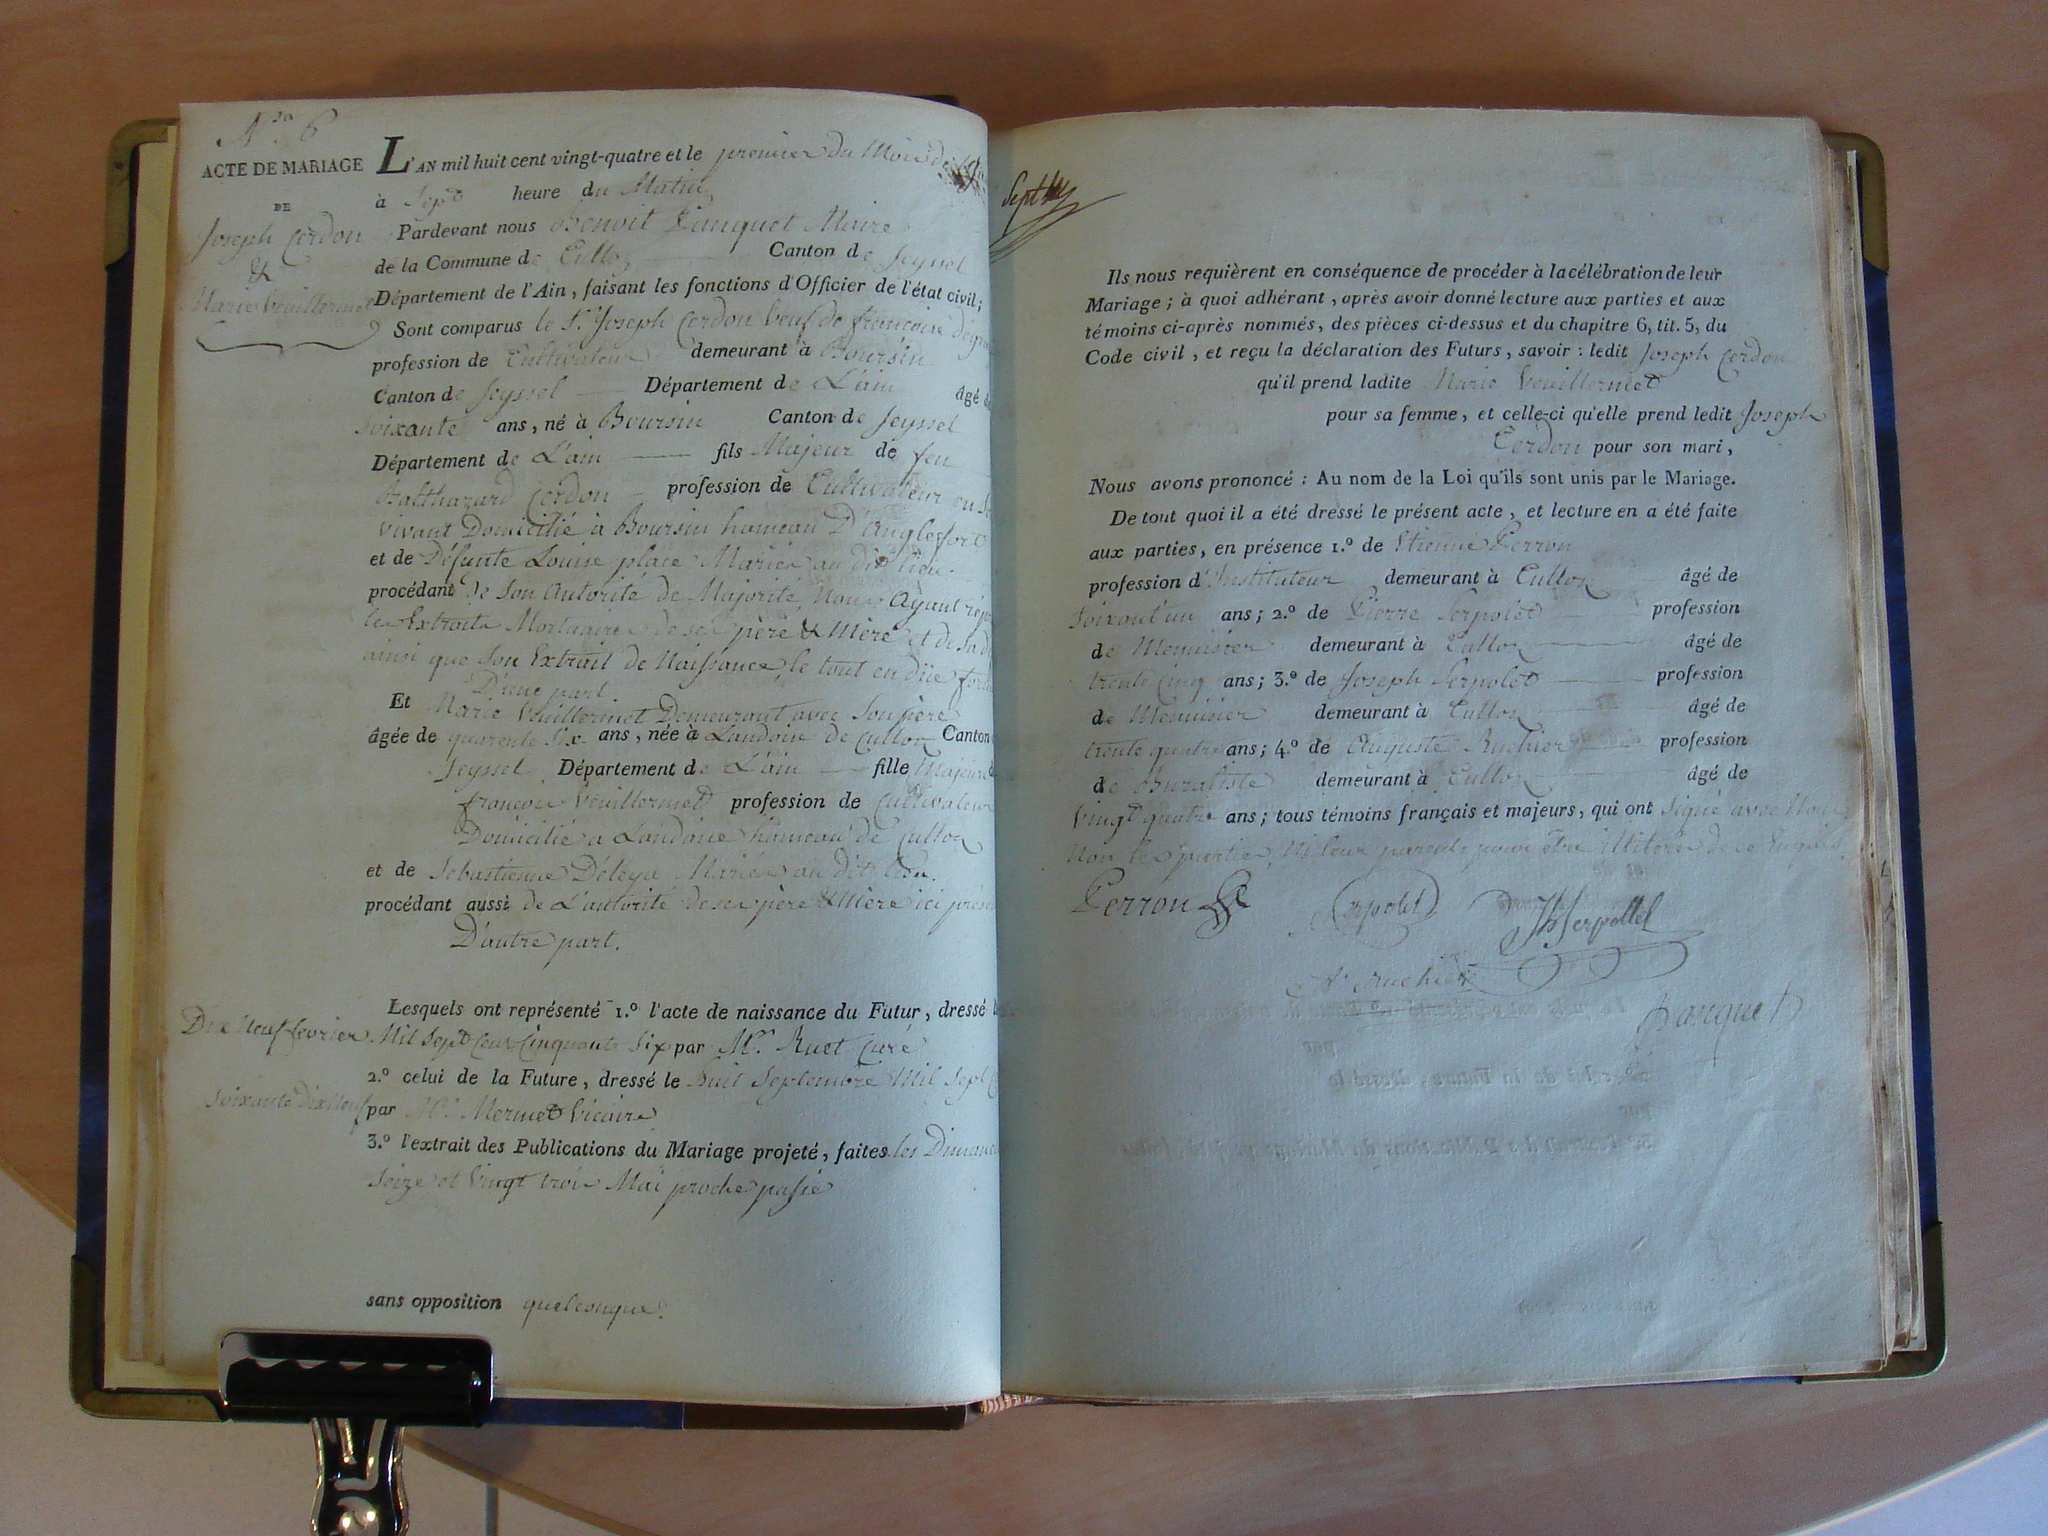 N.ro 6
ACTE DE MARIAGE
DE
Joseph Cerdon
&
Marie Veuillermet
L'AN mil huit cent vingt-quatre et le premier du Mois de
à Sept heure du Matin
Pardevant nous Benoit Panquet Maire
de la Commune de Culloz Canton de Seyssel
Département de l'Ain, faisant les fonctions d'Officier de l'état civil;
Sont comparus le Sr Joseph Cerdon Veuf de francoise
profession de Cultivateur demeurant à Boursin
Canton de Seyssel Département de L'ain âgé de
Soixante ans, né à Boursin Canton de Seyssel
Département de L'ain fils Majeur de feu
Balthazard Cerdon profession de Cultivateur en Son
vivant Domicilié à Boursin hameau D'Anglesfort
et de Défunte Louise place Mariés au dit lieu.
procédant de Son Autorité de Majorité, Nous Ayant
les Extraits Mortuaires de ses père & Mère et de
ainsi que Son Extrait de Naissance, le tout en düe forme
D'une part.
Et Marie Veuillermet Demeurant avec Son père
âgée de quarente Six ans, née à Landoin de Culloz Canton
Seyssel Département de L'ain fille Majeure de
francois Veuillermet profession de Cultivateur
Domicilié a Landoine hameau de Culloz
et de Sebastienne Déléga Mariés au dit lieu.
procédant aussi de L'autorité de ses père & Mère ici
D'autre part.
Lesquels ont représenté 1.º l'acte de naissance du Futur, dressé le
Dix Neuf fevrier Mil Sept Cent Cinquante Six par Mr. Ruet Curé
2.º celui de la Future, dressé le huit Septembre Mil Sept Cent
Soixante Dix Neuf par Mr. Mermet Vicaire
3.º l'extrait des Publications du Mariage projeté, faites les Dimanches
Seize et Vingt trois Mai proche passé
sans opposition quelconque.
Ils nous requièrent en conséquence de procéder à la célébration de leur
Mariage; à quoi adhérant, après avoir donné lecture aux parties et aux
témoins ci-après nommés, des pièces ci-dessus et du chapitre 6, tit. 5, du
Code civil, et reçu la déclaration des Futurs, savoir: ledit Joseph Cerdon
qu'il prend ladite Marie Veuillermet
pour sa femme, et celle-ci qu'elle prend ledit Joseph
Cerdon pour son mari,
Nous avons prononcé: Au nom de la Loi qu'ils sont unis par le Mariage.
De tout quoi il a été dressé le présent acte, et lecture en a été faite
aux parties, en présence 1.º de Etienne Perron
profession d'Instituteur demeurant à Culloz âgé de
Soixant'un ans; 2.º de Pierre Serpolet profession
de Menuisier demeurant à Culloz âgé de
trente Cinq ans; 3.º de Joseph Serpolet profession
de Menuisier demeurant à Culloz âgé de
trente quatre ans; 4.º de Auguste Ruchier profession
de Buraliste demeurant à Culloz âgé de
Vingt quatre ans; tous témoins français et majeurs, qui ont Signé avec Nous
Non les parties, Ni leur parents pour être Illiterés de ce Enquis.
Perron
Serpolet
Jh Serpollet
A. Ruchier
Panquet